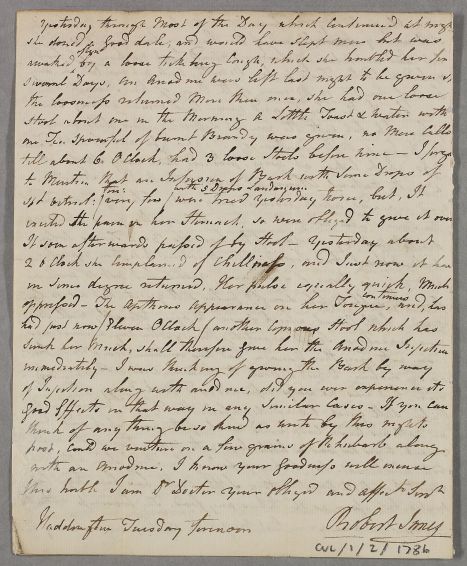 Yesterday through most of the Day, which Continued at night
she dozed & slept a Good deale, and would have slept more but was
awaked by a loose tickling Cough, which she has had for
several Days, an Anodine was left last night to be given if
the looseness returned More than once, she had one loose
Stool about one in the Morning a Little Toast & Water with
one Tea Spoonful of burnt Brandy was given, no More Calls
till about 6 O'Clock, had 3 loose Stools before nine — I forgot
to Mention that an Infusion of Bark with Some Drops of
with 5 Drops Laudanum
were tried Yesterday twice, but, It
excited the pain in her Stomach, so were obliged to give it over
It soon afterwards passed of by Stool — Yesterday about
2 O Clock she Complained of Chillness, and Just now it has
in Some degree returned. Her pulse equally quick, Much
oppressed — The Apthous Appearance on her Tongue, continues and, has
had just now (Eleven O'Clock) another Copious Stool which has
Sunk her Much, shall therefore give her the Anodine Injection
immediately — I was thinking of giving the Bark by way
of Injection along with anodine, did you ever experience its
Good Effects in that way in any Similar Cases — If you can
think of any thing be so kind as write by this nights
post, Could we venture on a few grains of Rhubarb along
with an Anodine. I know your Goodness will excuse
this, I am Dr Doctor your obliged and affect Servt
Haddington Tuesday forenoon
Robert Somers
CUL/1/2/1786